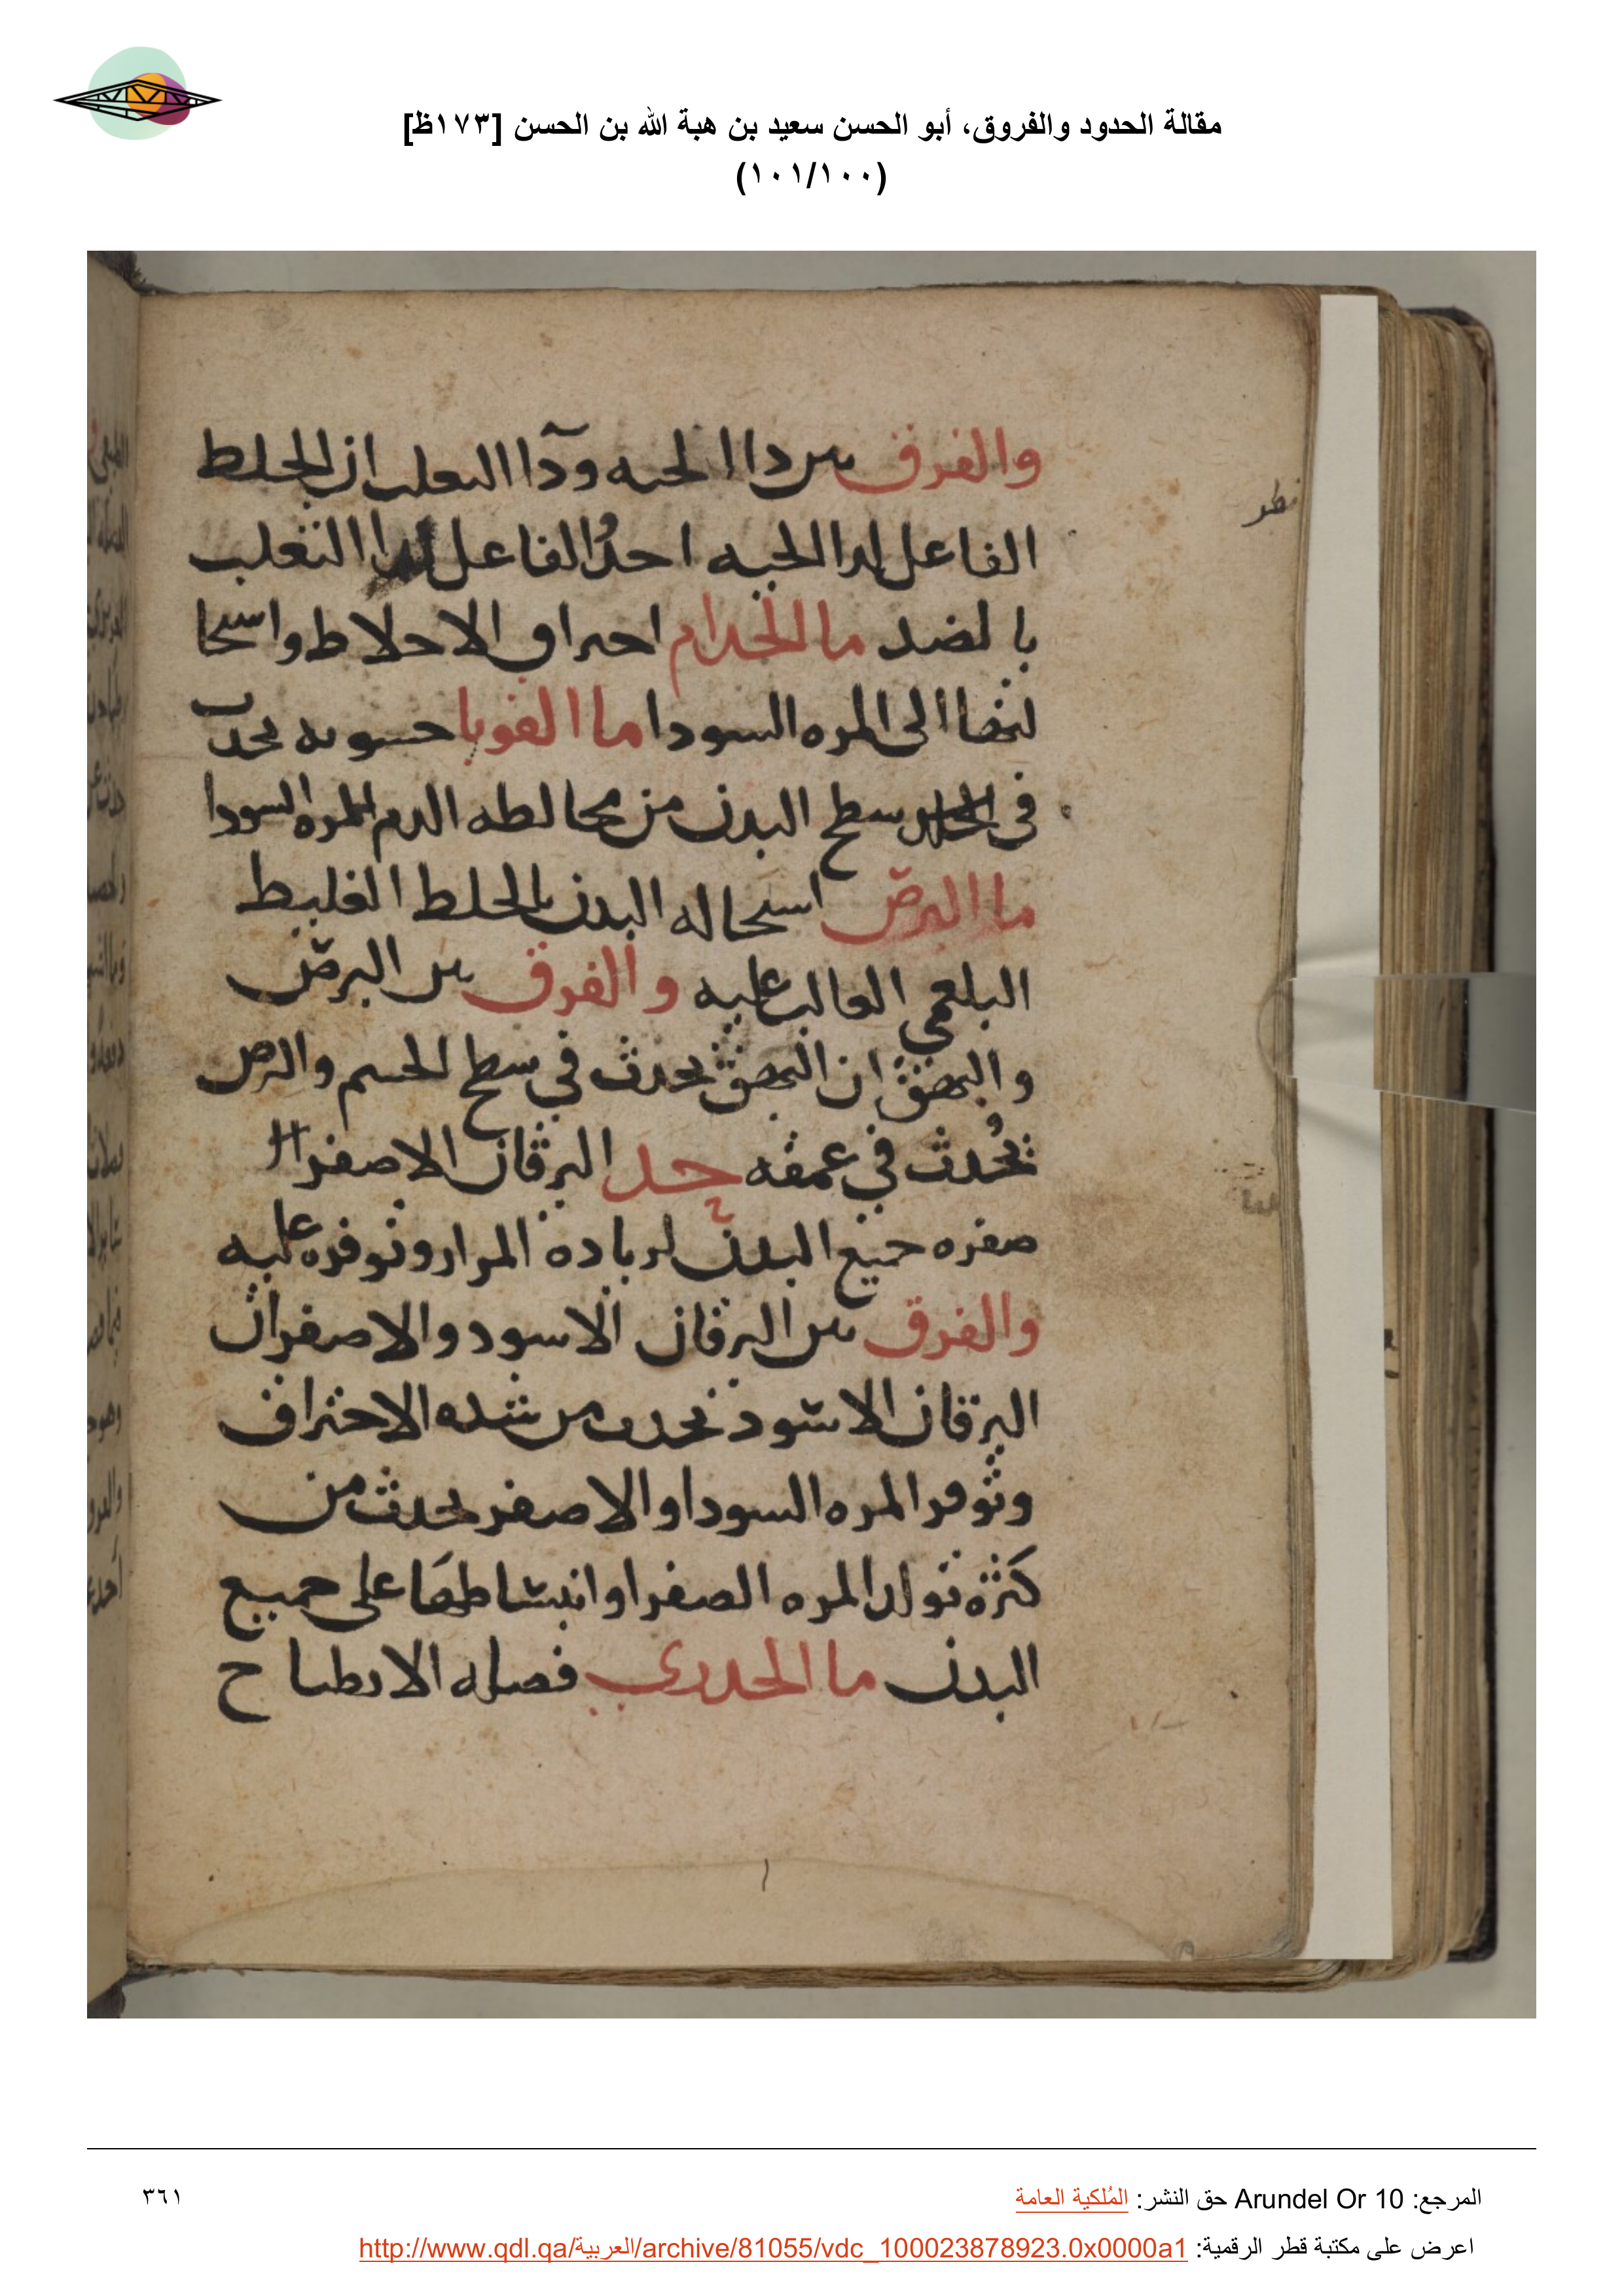 مقالة الحدود والفروق، أبو الحسن سعيد بن هبة الله بن الحسن [١٧٣ظ]
(١٠١/١٠٠)
والفرق بين داا الحيه ودآا الثعلب ان الخلط
نظر
الفاعل لدا الحيه احدُّ والفاعل لدا الثعلب
بالضد ما الجذام احتراق الاخلاط واستحا
لتها الى المره السودا ما القوبا خشونه تحدث
في سطح البدن من مخالطه الدم المره السودا
ما البرص استحاله البدن بالخلط الغليظ
البلغمي الغالب عليه والفرق بين البرص
والبهق ان البهق يحدث في سطح الجسم والبرص
يُحدث في عمقه حد اليرقان الاصفر
صفره جميع البدن لزيادة المرار وتوفره عليه
والفرق بين اليرقان الاسود والاصفر ان
اليرقان الاسود تحدث من شده الاحتراق
وتوفر المره السودا والاصفر يحدث من
كثرة تولد المره الصفرا وانبساطها على جميع
البدن ما الجدري فضله الانطباخ
المرجع: Arundel Or 10 حق النشر: المُلكية العامة
٣٦١
اعرض على مكتبة قطر الرقمية: http://www.qdl.qa/العربية/archive/81055/vdc_100023878923.0x0000a1